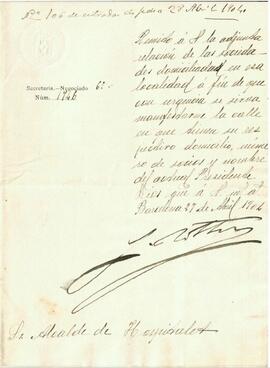 Nº 106 de entrada de fecha 28 Abril 1904
Remito á V. la adjunta
relación de las Socieda-
des domiciliadas en esa
localidad á fin de que
con urgencia se sirva
manifestarme la calle
en que tienen su res-
pectivo domicilio, núme-
ro de socios y nombre
del actual Presidente
Dios gue á V. m. a.
Barcelona 27 de Abril 1904
Secretaría.-Negociado 6º
Núm. 1946
Sr. Alcalde de Hospitalet